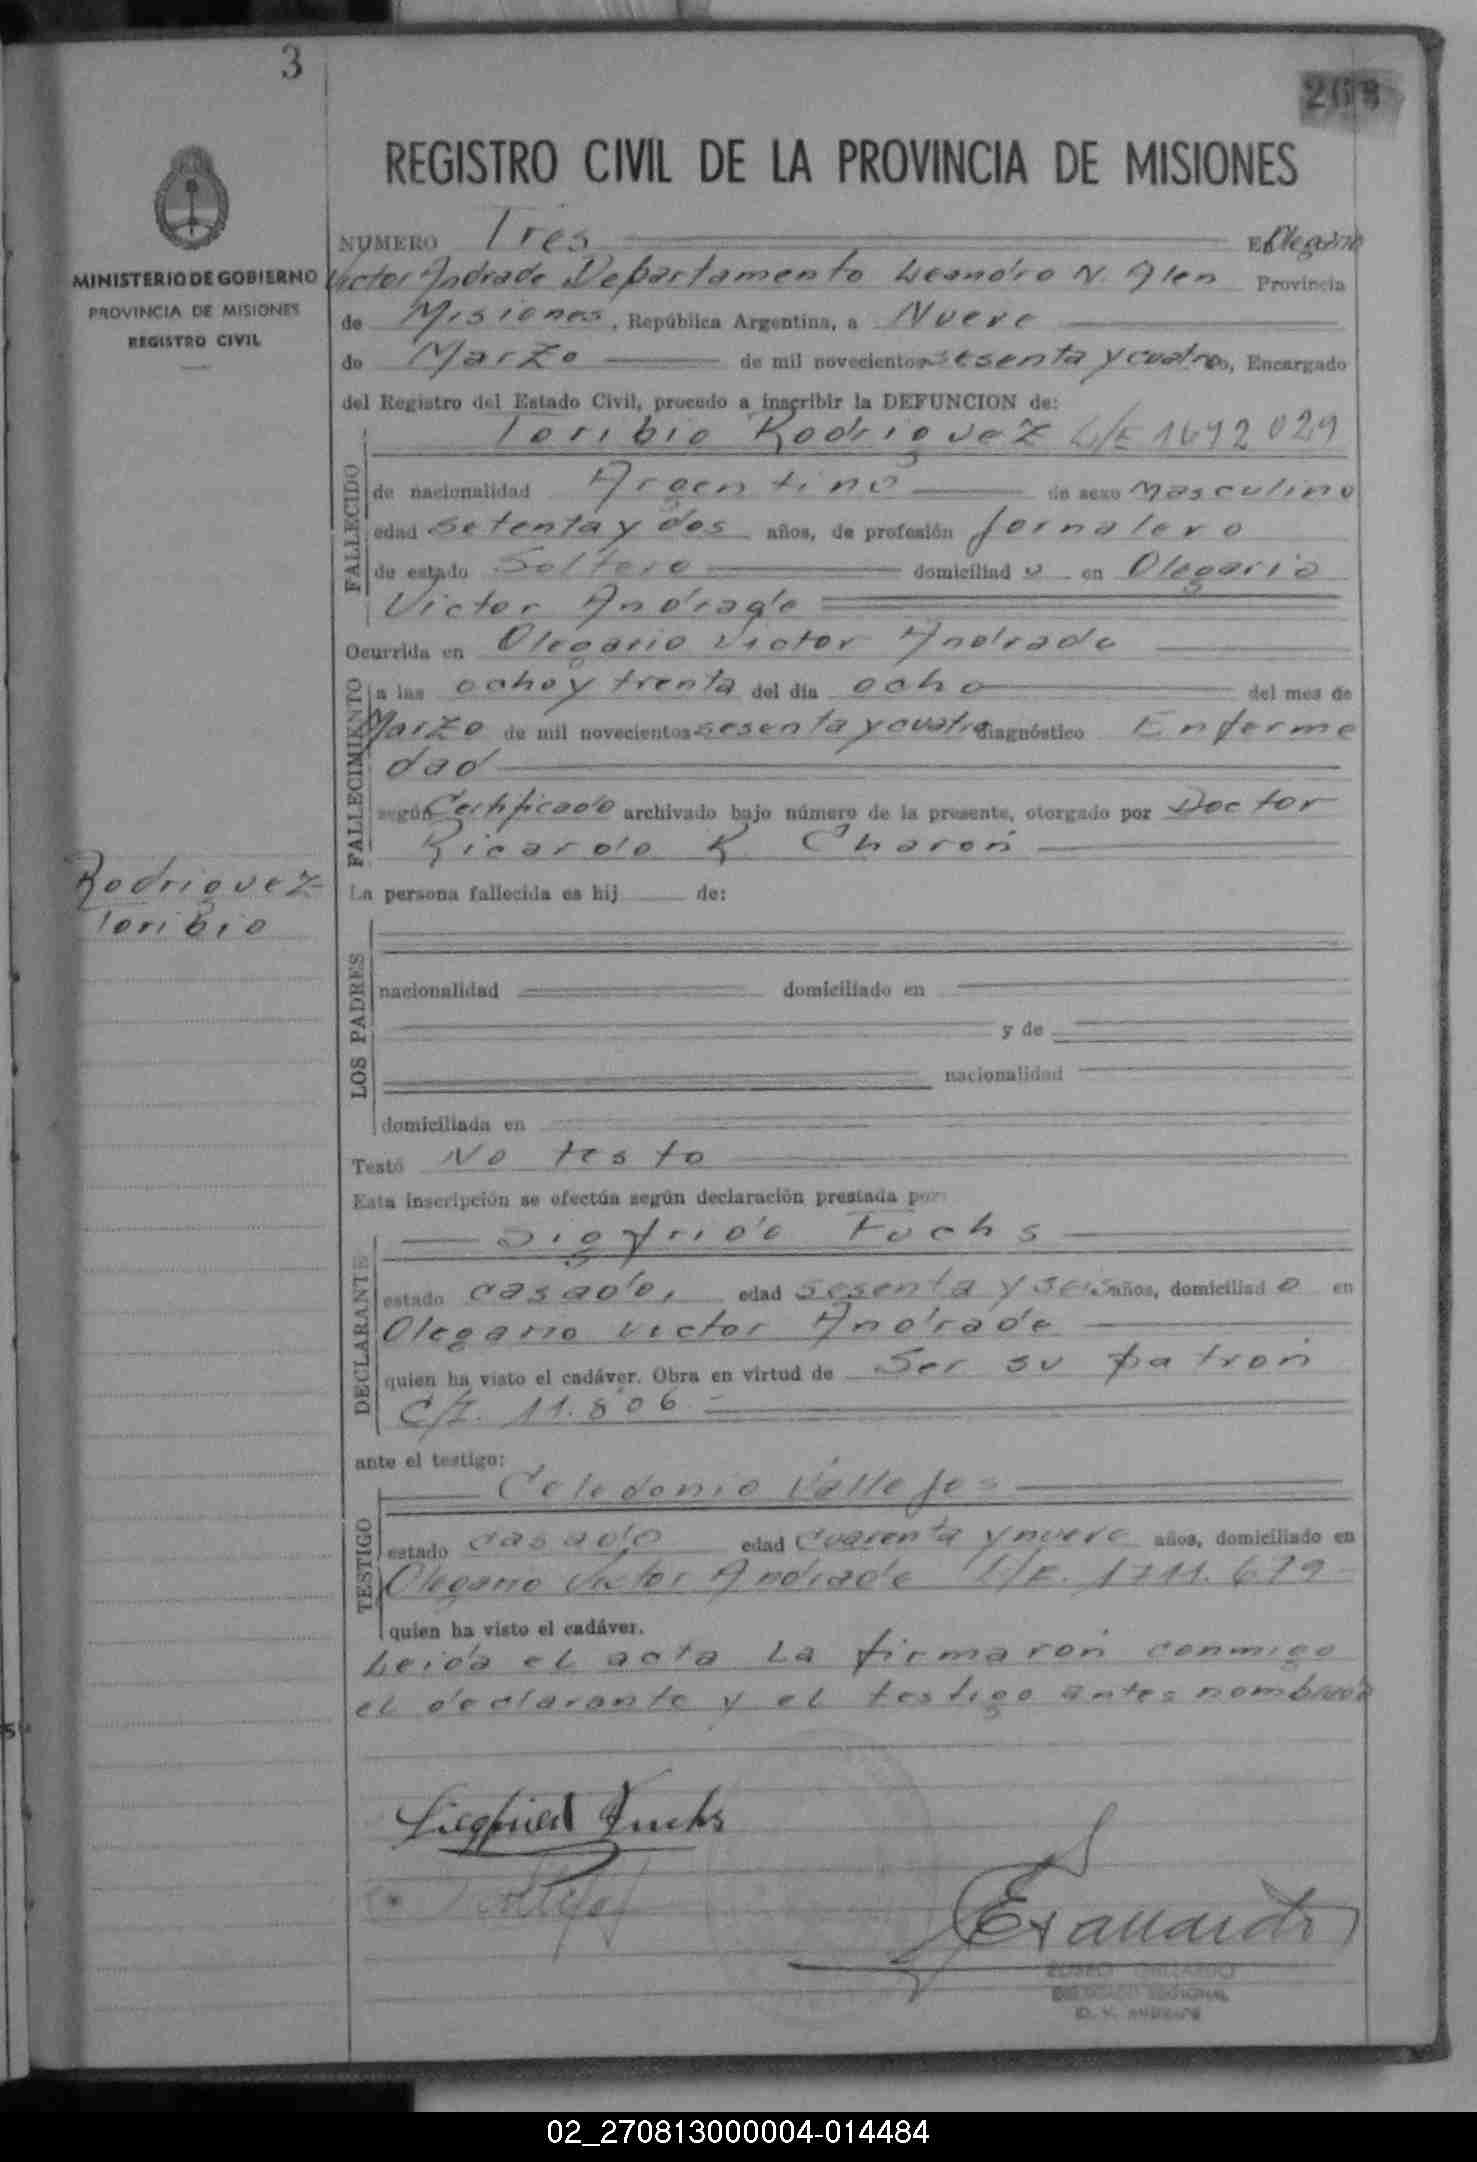 3
268
REGISTRO CIVIL DE LA PROVINCIA DE MISIONES
MINISTERIO DE GOBIERNO
PROVINCIA DE MISIONES
REGISTRO CIVIL
NUMERO Tres En Olegario
Victor Andrade Departamento Leandro N. Alen Provincia
de Misiones, República Argentina, a Nueve
de Marzo de mil novecientos sesenta y cuatro, Encargado
del Registro del Estado Civil, procedo a inscribir la DEFUNCION de:
Toribio Rodriguez L/E 1692029
FALLECIDO
de nacionalidad Argentino de sexo Masculino
edad Setenta y dos años, de profesión Jornalero
de estado Soltero domiciliado en Olegario
Victor Andrade
Ocurrida en Olegario Victor Andrade
FALLECIMIENTO
a las ocho y trenta del día ocho del mes de
Marzo de mil novecientos sesenta y cuatro diagnóstico Enferme
dad
según Certificado archivado bajo número de la presente, otorgado por Doctor
Ricardo R. Charon
Rodriguez
Toribio
La persona fallecida es hij de:
LOS PADRES
nacionalidad domiciliado en
y de
nacionalidad
domiciliada en
Testó No testo
Esta inscripción se efectúa según declaración prestada por:
Sigfrido Fuchs
DECLARANTE
estado casado, edad sesenta y seis años, domiciliado en
Olegario Victor Andrade
quien ha visto el cadáver. Obra en virtud de Ser su patron
C/I. 11.806.-
ante el testigo:
Celedonio Vallejos
TESTIGO
estado casado edad cuarenta y nueve años, domiciliado en
Olegario Victor Andrade L/E. 1711.679-
quien ha visto el cadáver.
Leida el acta La firmaron conmigo
el declarante y el testigo antes nombrado
Siegfried Fuchs
GALLARDO
DELEGADO REGIONAL
O. V. ANDRADE
02_270813000004-014484